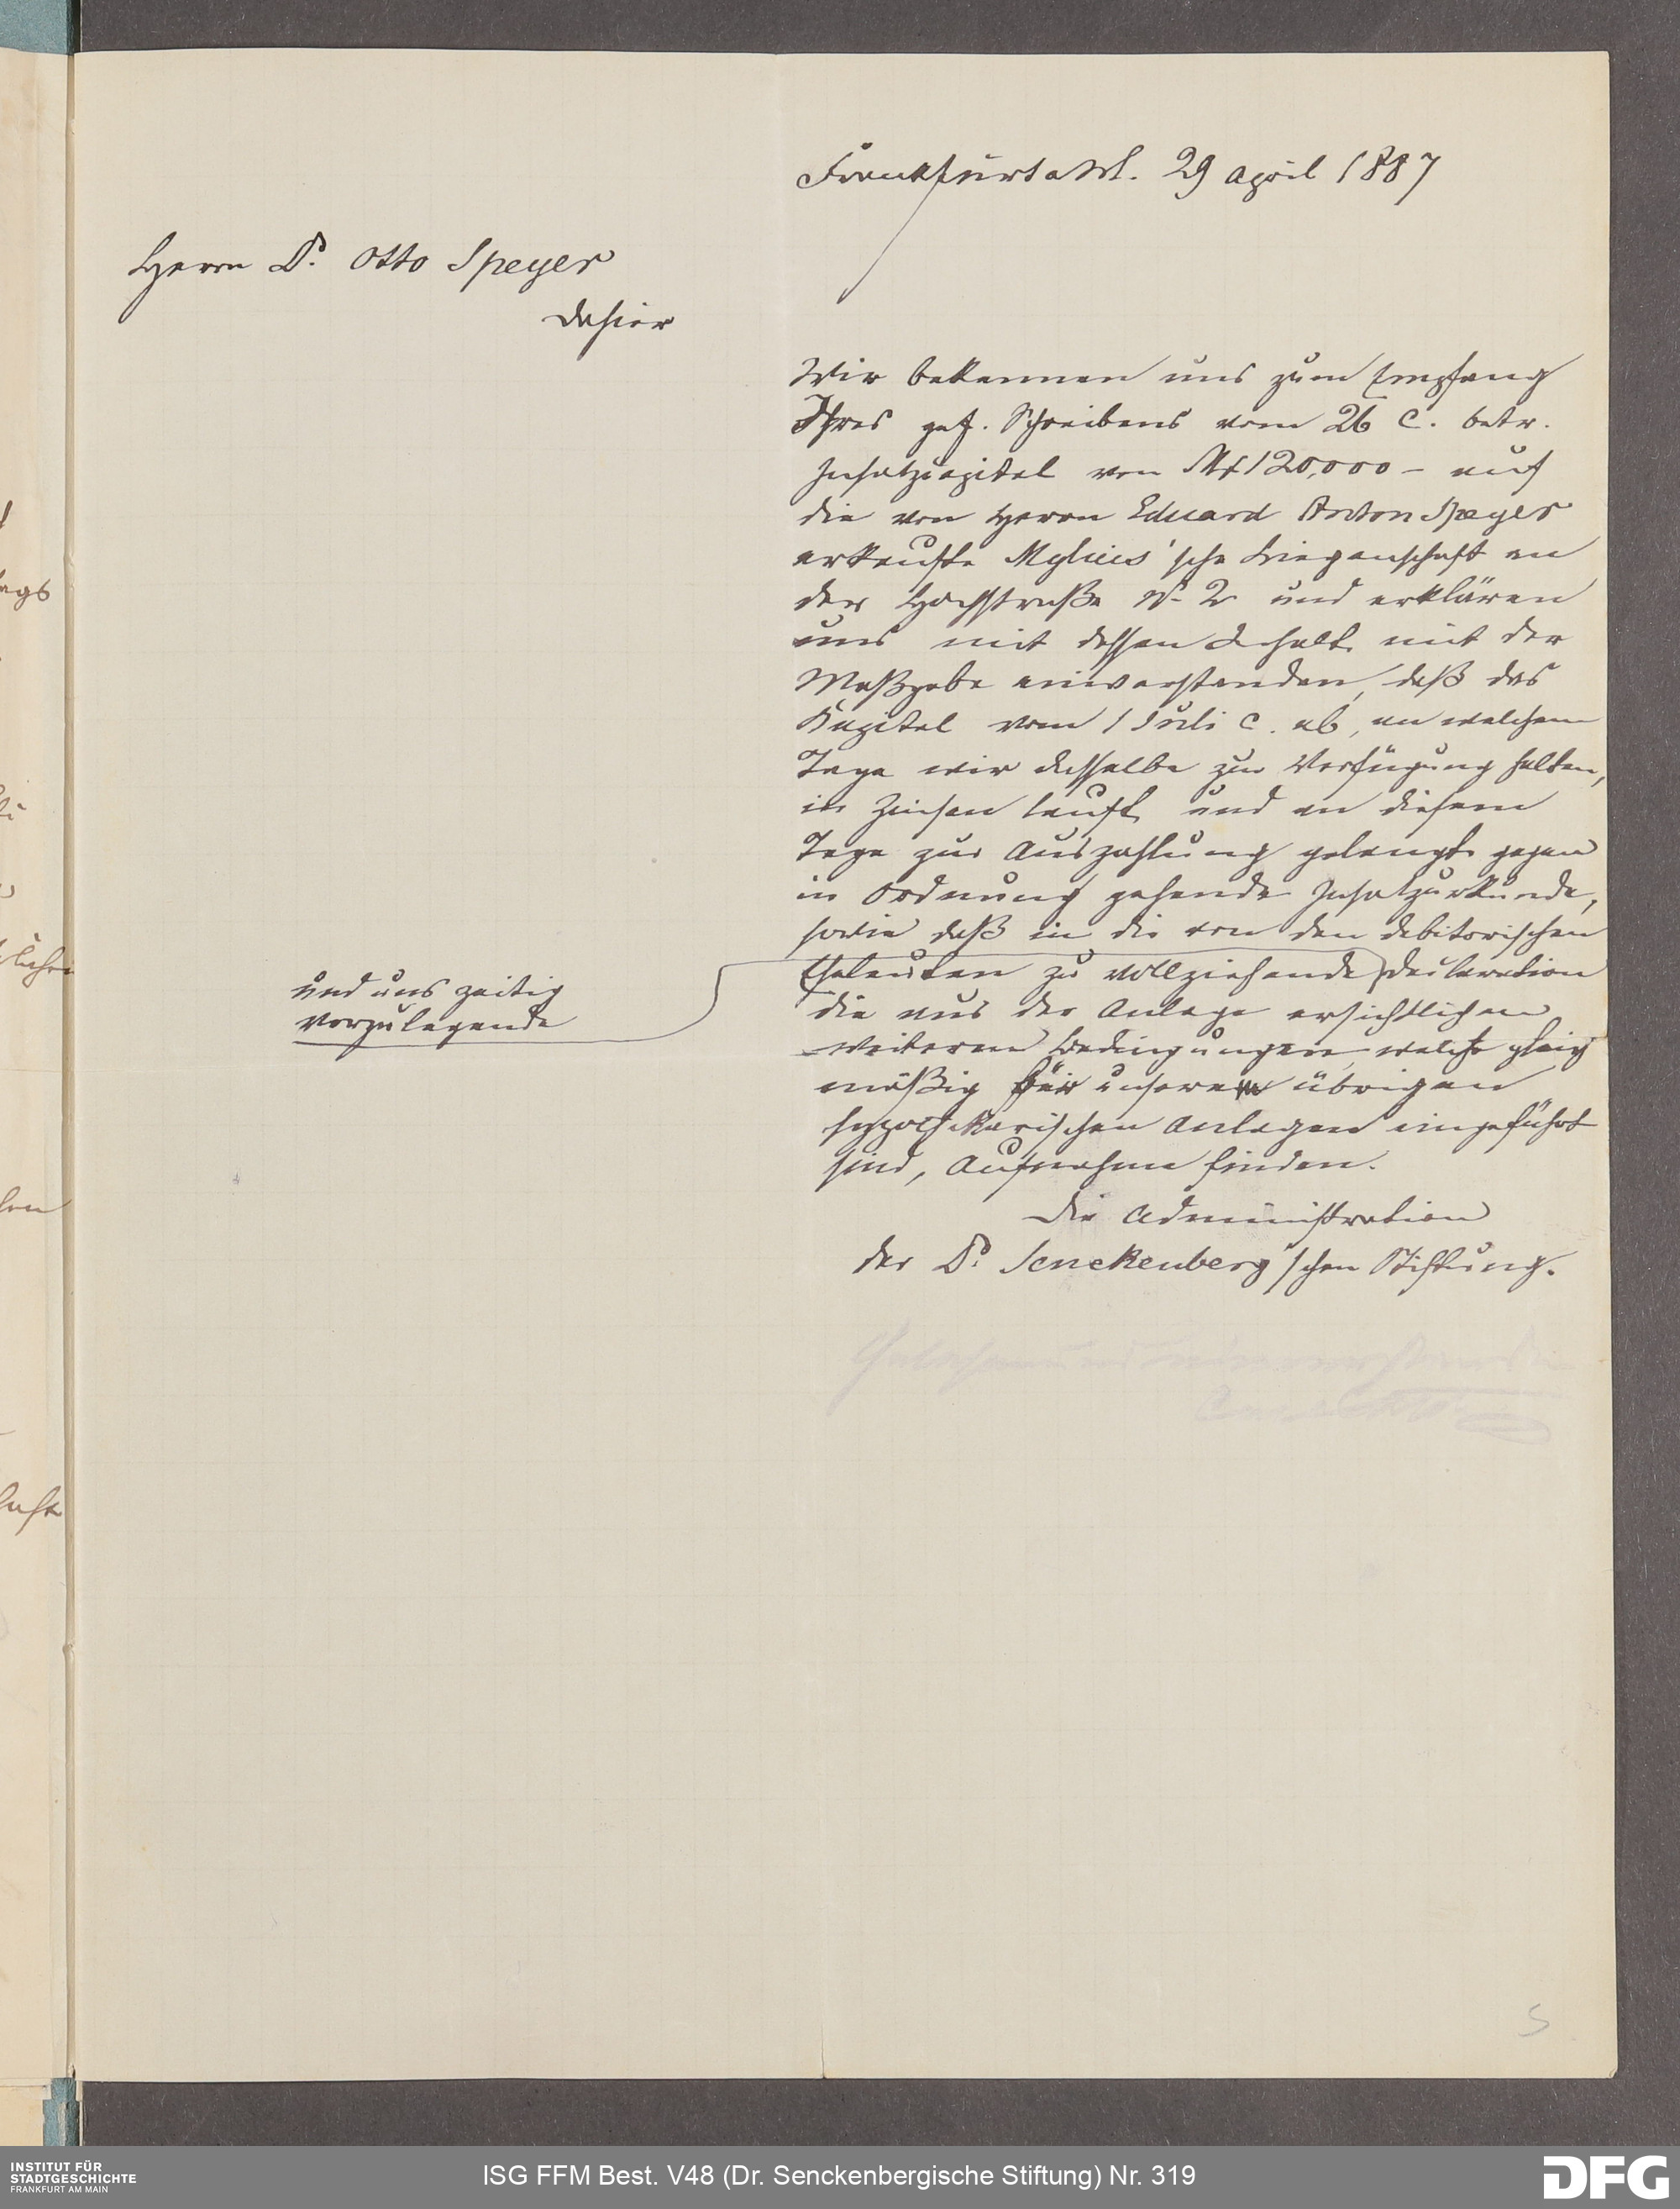 Frankfurt a M. 29 April 1887
Herrn Dr. Otto Speyer
dahier
Wir bekennen uns zum Empfang
Ihres gef. Schreibens vom 26 c. betr.
Insatzcapital von M 120,000 – auf
die von Herrn Eduard Anton Speyer
erkaufte Mylius'sche Liegenschaft an
der Hochstraße No 2 und erklären
uns mit dessen Inhalt mit der
Maßgabe einverstanden, daß das
Kapital vom 1 Juli c. ab, an welchem
Tage wir dasselbe zur Verfügung halten,
in Zinsen lauft und an diesem
Tage zur Auszahlung gelangt gegen
in Ordnung gehende Insatzurkunde,
sowie daß in die von den debitorischen
Eheleuten zu vollziehende Declaration
und uns zeitig
vorzulegende
die aus der Anlage ersichtlichen
weiteren Bedingungen, welche gleich
mäßig für unsere übrigen
hypothekarischen Anlagen eingeführt
sind, Aufnahme finden.
Die Administration
der Dr. Senckenberg'schen Stiftung.
5
INSTITUT FÜR
STADTGESCHICHTE
FRANKFURT AM MAIN
ISG FFM Best. V48 (Dr. Senckenbergische Stiftung) Nr. 319
DFG